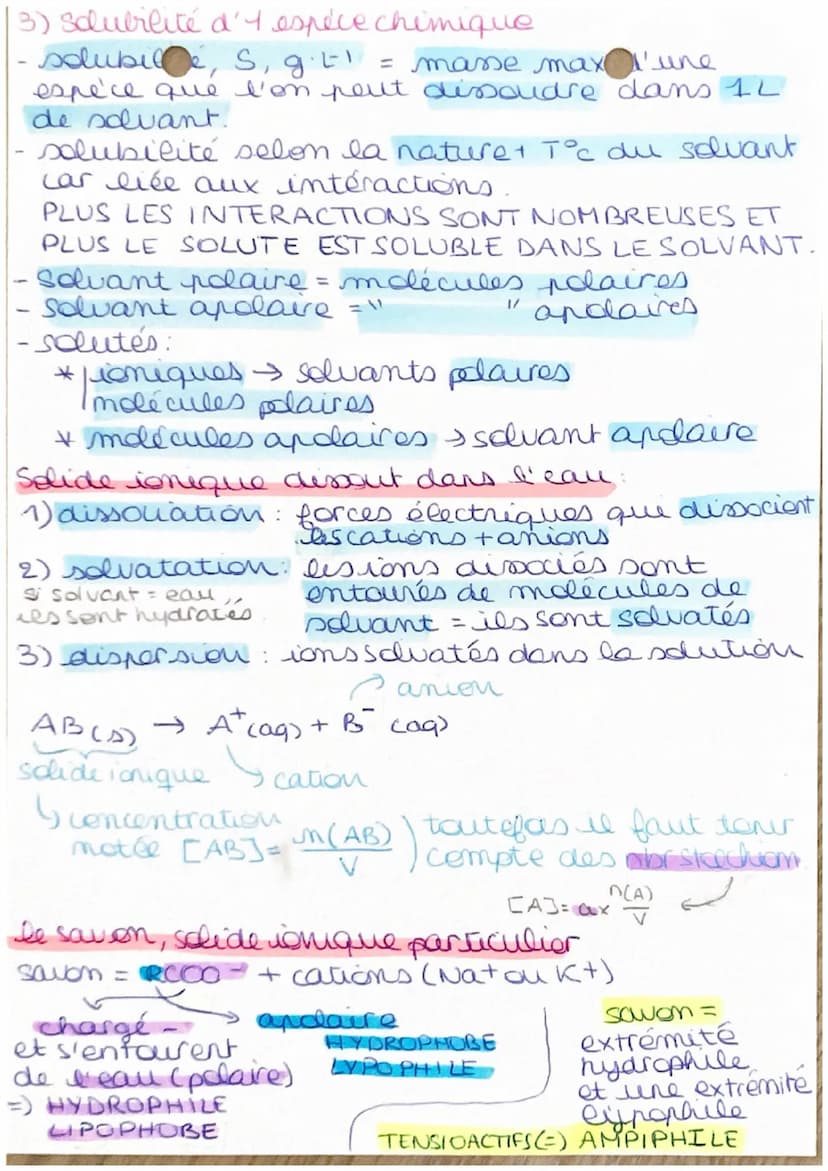 3) solubilité d'1 espèce chimique
- solubil é, S, g.L-1 = masse max d'une
espèce que l'on peut dissoudre dans 1L
de solvant.
- solubilité selon la nature + T°C du solvant
car liée aux intéractions.
PLUS LES INTERACTIONS SONT NOMBREUSES ET
PLUS LE SOLUTE EST SOLUBLE DANS LE SOLVANT.
- Solvant polaire = molécules polaires
- Solvant apolaire = " " apolaires
- solutés :
* ioniques → solvants polaires
molécules polaires
* molécules apolaires → solvant apolaire
Solide ionique dissout dans l'eau :
1) dissociation : forces électriques qui dissocient
les cations + anions
2) solvatation : les ions dissociés sont
si solvant = eau, entourés de molécules de
ils sont hydratés solvant = ils sont solvatés
3) dispersion : ions solvatés dans la solution
anion
AB(s) → A+(aq) + B-(aq)
solide ionique cation
concentration toutefois il faut tenir
notée [AB] = n(AB)/V compte des nbr stœchiom
[A] = a x n(A)/V
le savon, solide ionique particulier
savon = RCOO- + cations (Na+ ou K+)
chargé -
et s'entourent
de l'eau (polaire)
=) HYDROPHILE
LIPOPHOBE
apolaire
HYDROPHOBE
LYPOPHILE
savon =
extrémité
hydrophile
et une extrémité
lypophile
TENSIOACTIFS (=) AMPIPHILE